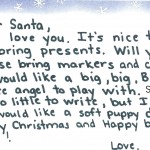 r Santa,
love you. It's nice t
oring presents. Will y
se bring markers and c
would like a big, big, B
e angel to play with. S
o little to write, but I
would like a soft puppy d
y Christmas and Happy b
Love.